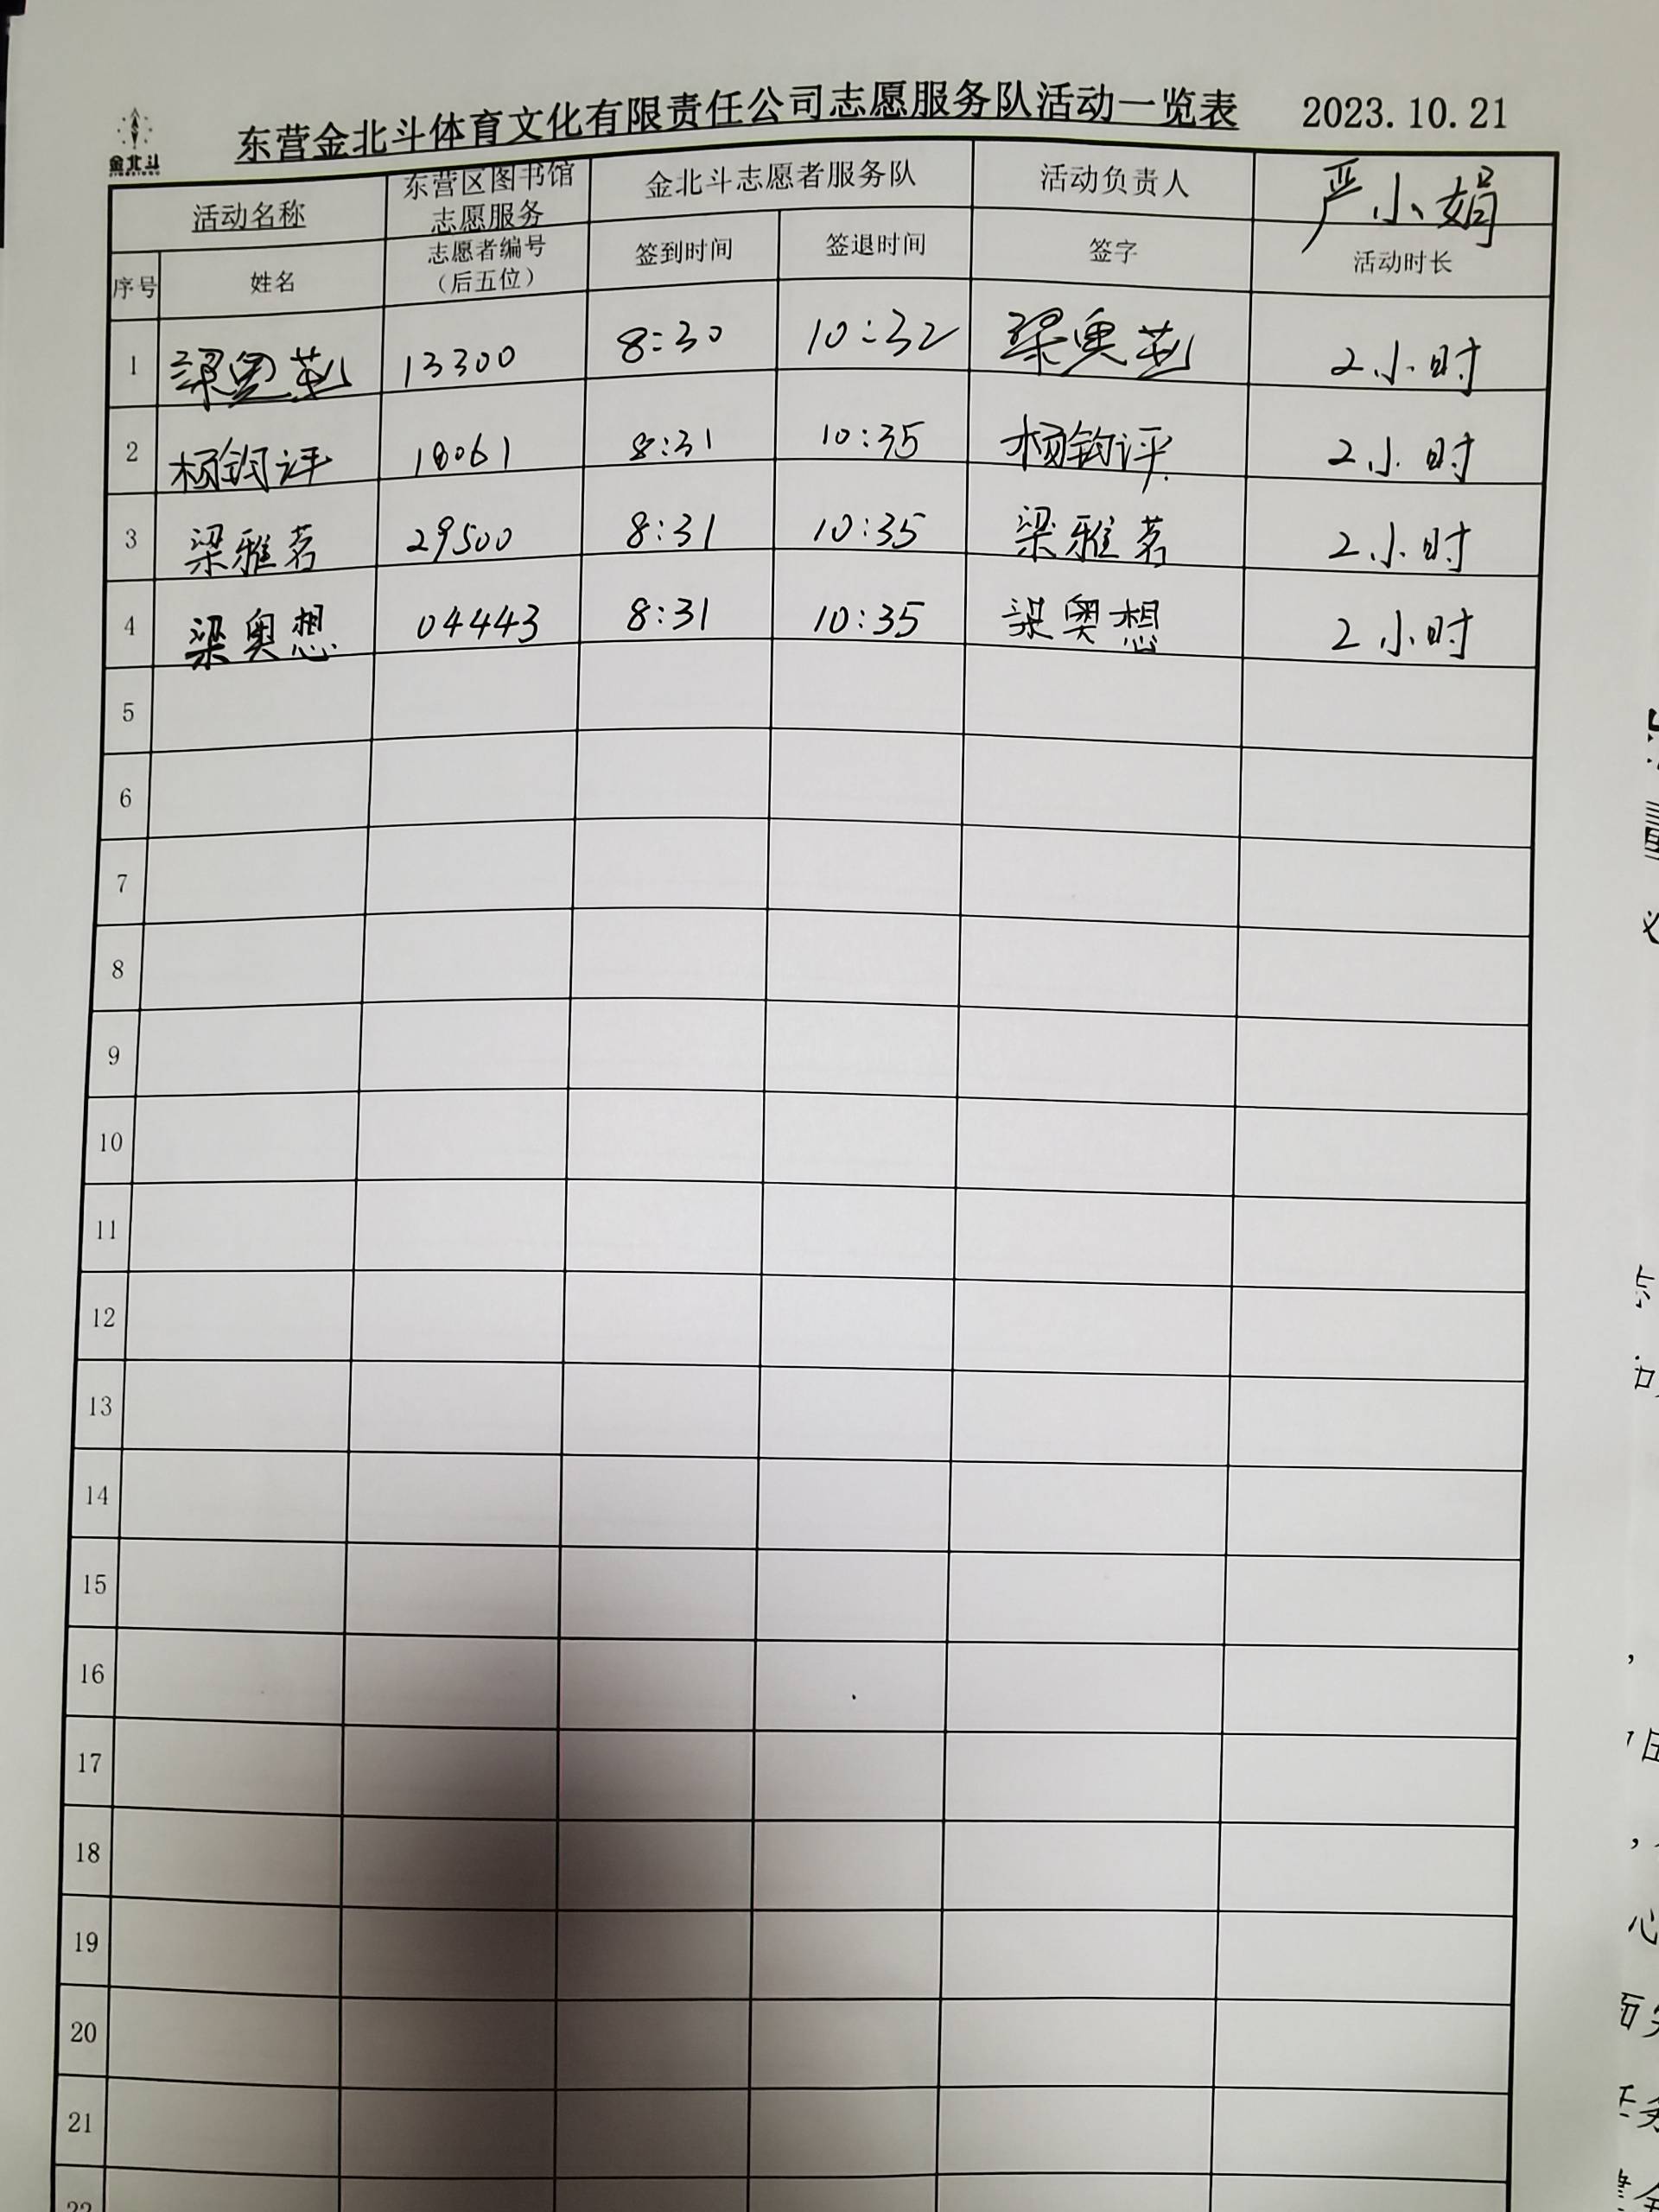 金北斗
东营金北斗体育文化有限责任公司志愿服务队活动一览表 2023.10.21
活动名称 东营区图书馆志愿服务 金北斗志愿者服务队 活动负责人 严小娟
序号 姓名 志愿者编号（后五位） 签到时间 签退时间 签字 活动时长
1 梁奥 13300 8:30 10:32 梁奥 2小时
2 杨钧评 18061 8:31 10:35 杨钧评 2小时
3 梁雅茗 29500 8:31 10:35 梁雅茗 2小时
4 梁奥想 04443 8:31 10:35 梁奥想 2小时
5
6
7
8
9
10
11
12
13
14
15
16
17
18
19
20
21
22